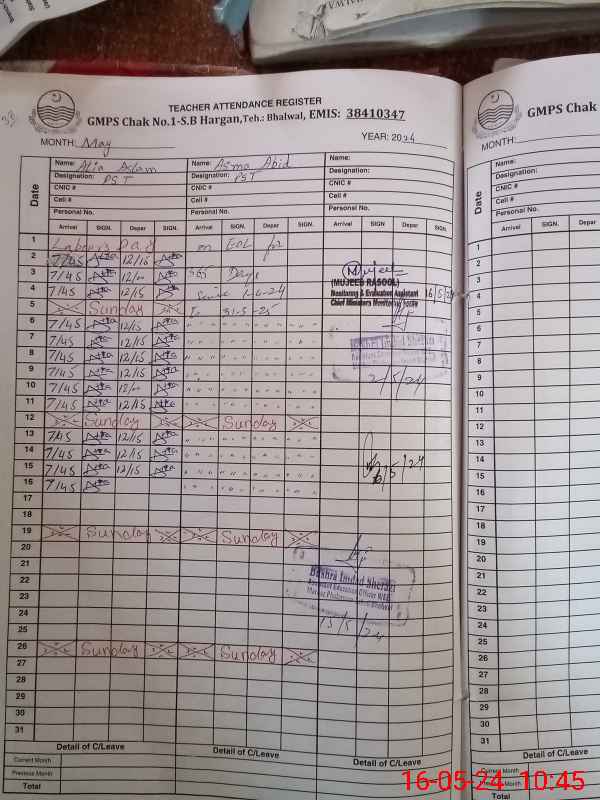 TEACHER ATTENDANCE REGISTER
GMPS Chak No.1-S.B Hargan, Teh.: Bhalwal, EMIS: 38410347
MONTH: May YEAR: 2024
Date Name: Atia Aslam Name: Asma Abid Name:
Designation: PST Designation: PST Designation:
CNIC # CNIC # CNIC #
Cell # Cell # Cell #
Personal No. Personal No. Personal No.
Arrival SIGN. Depar SIGN. Arrival SIGN. Depar SIGN. Arrival SIGN. Depar SIGN.
1 Labours Day on EOL for
2 7/45 12/15
3 7/45 12/00 365 Days
4 7/45 12/15 Since 1-6-24
5 Sunday To 31-5-25
6 7/45 12/15 " " " " " " "
7 7/45 12/15 " " " " " " "
8 7/45 12/15 " " " " " " "
9 7/45 12/15 " " " " " " "
10 7/45 12/00 " " " " " " "
11 7/45 12/15 " " " " " " "
12 Sunday Sunday
13 7/45 12/15 " " " " " " "
14 7/45 12/15 " " " " " " "
15 7/45 12/15 " " " " " " "
16 7/45 " " " " " " "
17
18
19 Sunday Sunday
20
21
22
23
24
25
26 Sunday Sunday
27
28
29
30
31
Mujeeb
(MUJEEB RASOOL)
Monitoring & Evaluation Assistant
Chief Ministers Monitoring Force
16/5/24
2/5/24
16/5/24
Bushra Imdad Sherazi
Assistant Education Officer
15/5/24
Detail of C/Leave Detail of C/Leave Detail of C/Leave
Current Month
Previous Month
Total
GMPS Chak
MONTH:
Date Name:
Designation:
CNIC #
Cell #
Personal No.
Arrival SIGN. Depar
1
2
3
4
5
6
7
8
9
10
11
12
13
14
15
16
17
18
19
20
21
22
23
24
25
26
27
28
29
30
31
Detail of C/Leave
Current Month
Previous Month
Total
16-05-24 10:45